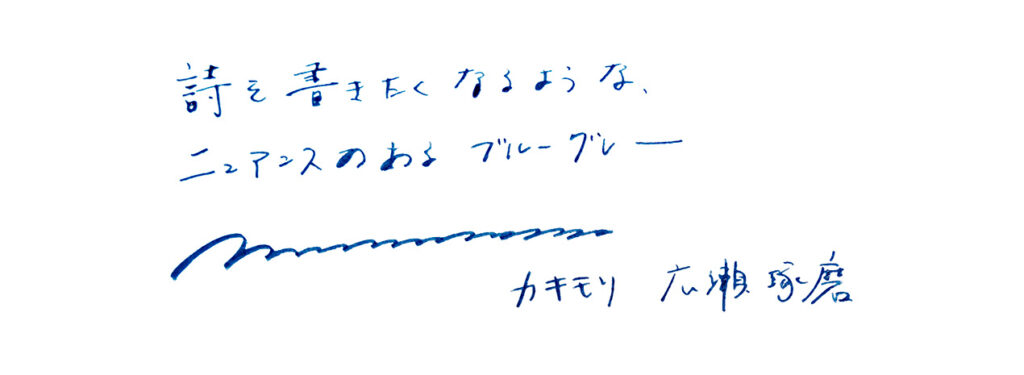 詩を書きたくなるような、
ニュアンスのある ブルーグレー
カキモリ 広瀬琢磨